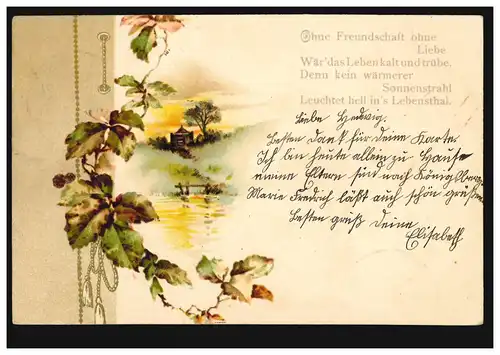 Ohne Freundschaft ohne
Liebe
Wär' das Leben kalt und trübe.
Denn kein wärmerer
Sonnenstrahl
Leuchtet hell in's Lebensthal.
Liebe Hedwig.
Besten Dank für Deine Karte.
Ich bin heute allein zu Hause
meine Eltern sind nach Königsberg.
Marie Friedrich läßt auch schön grüßen
Besten Gruß Deine
Elisabeth